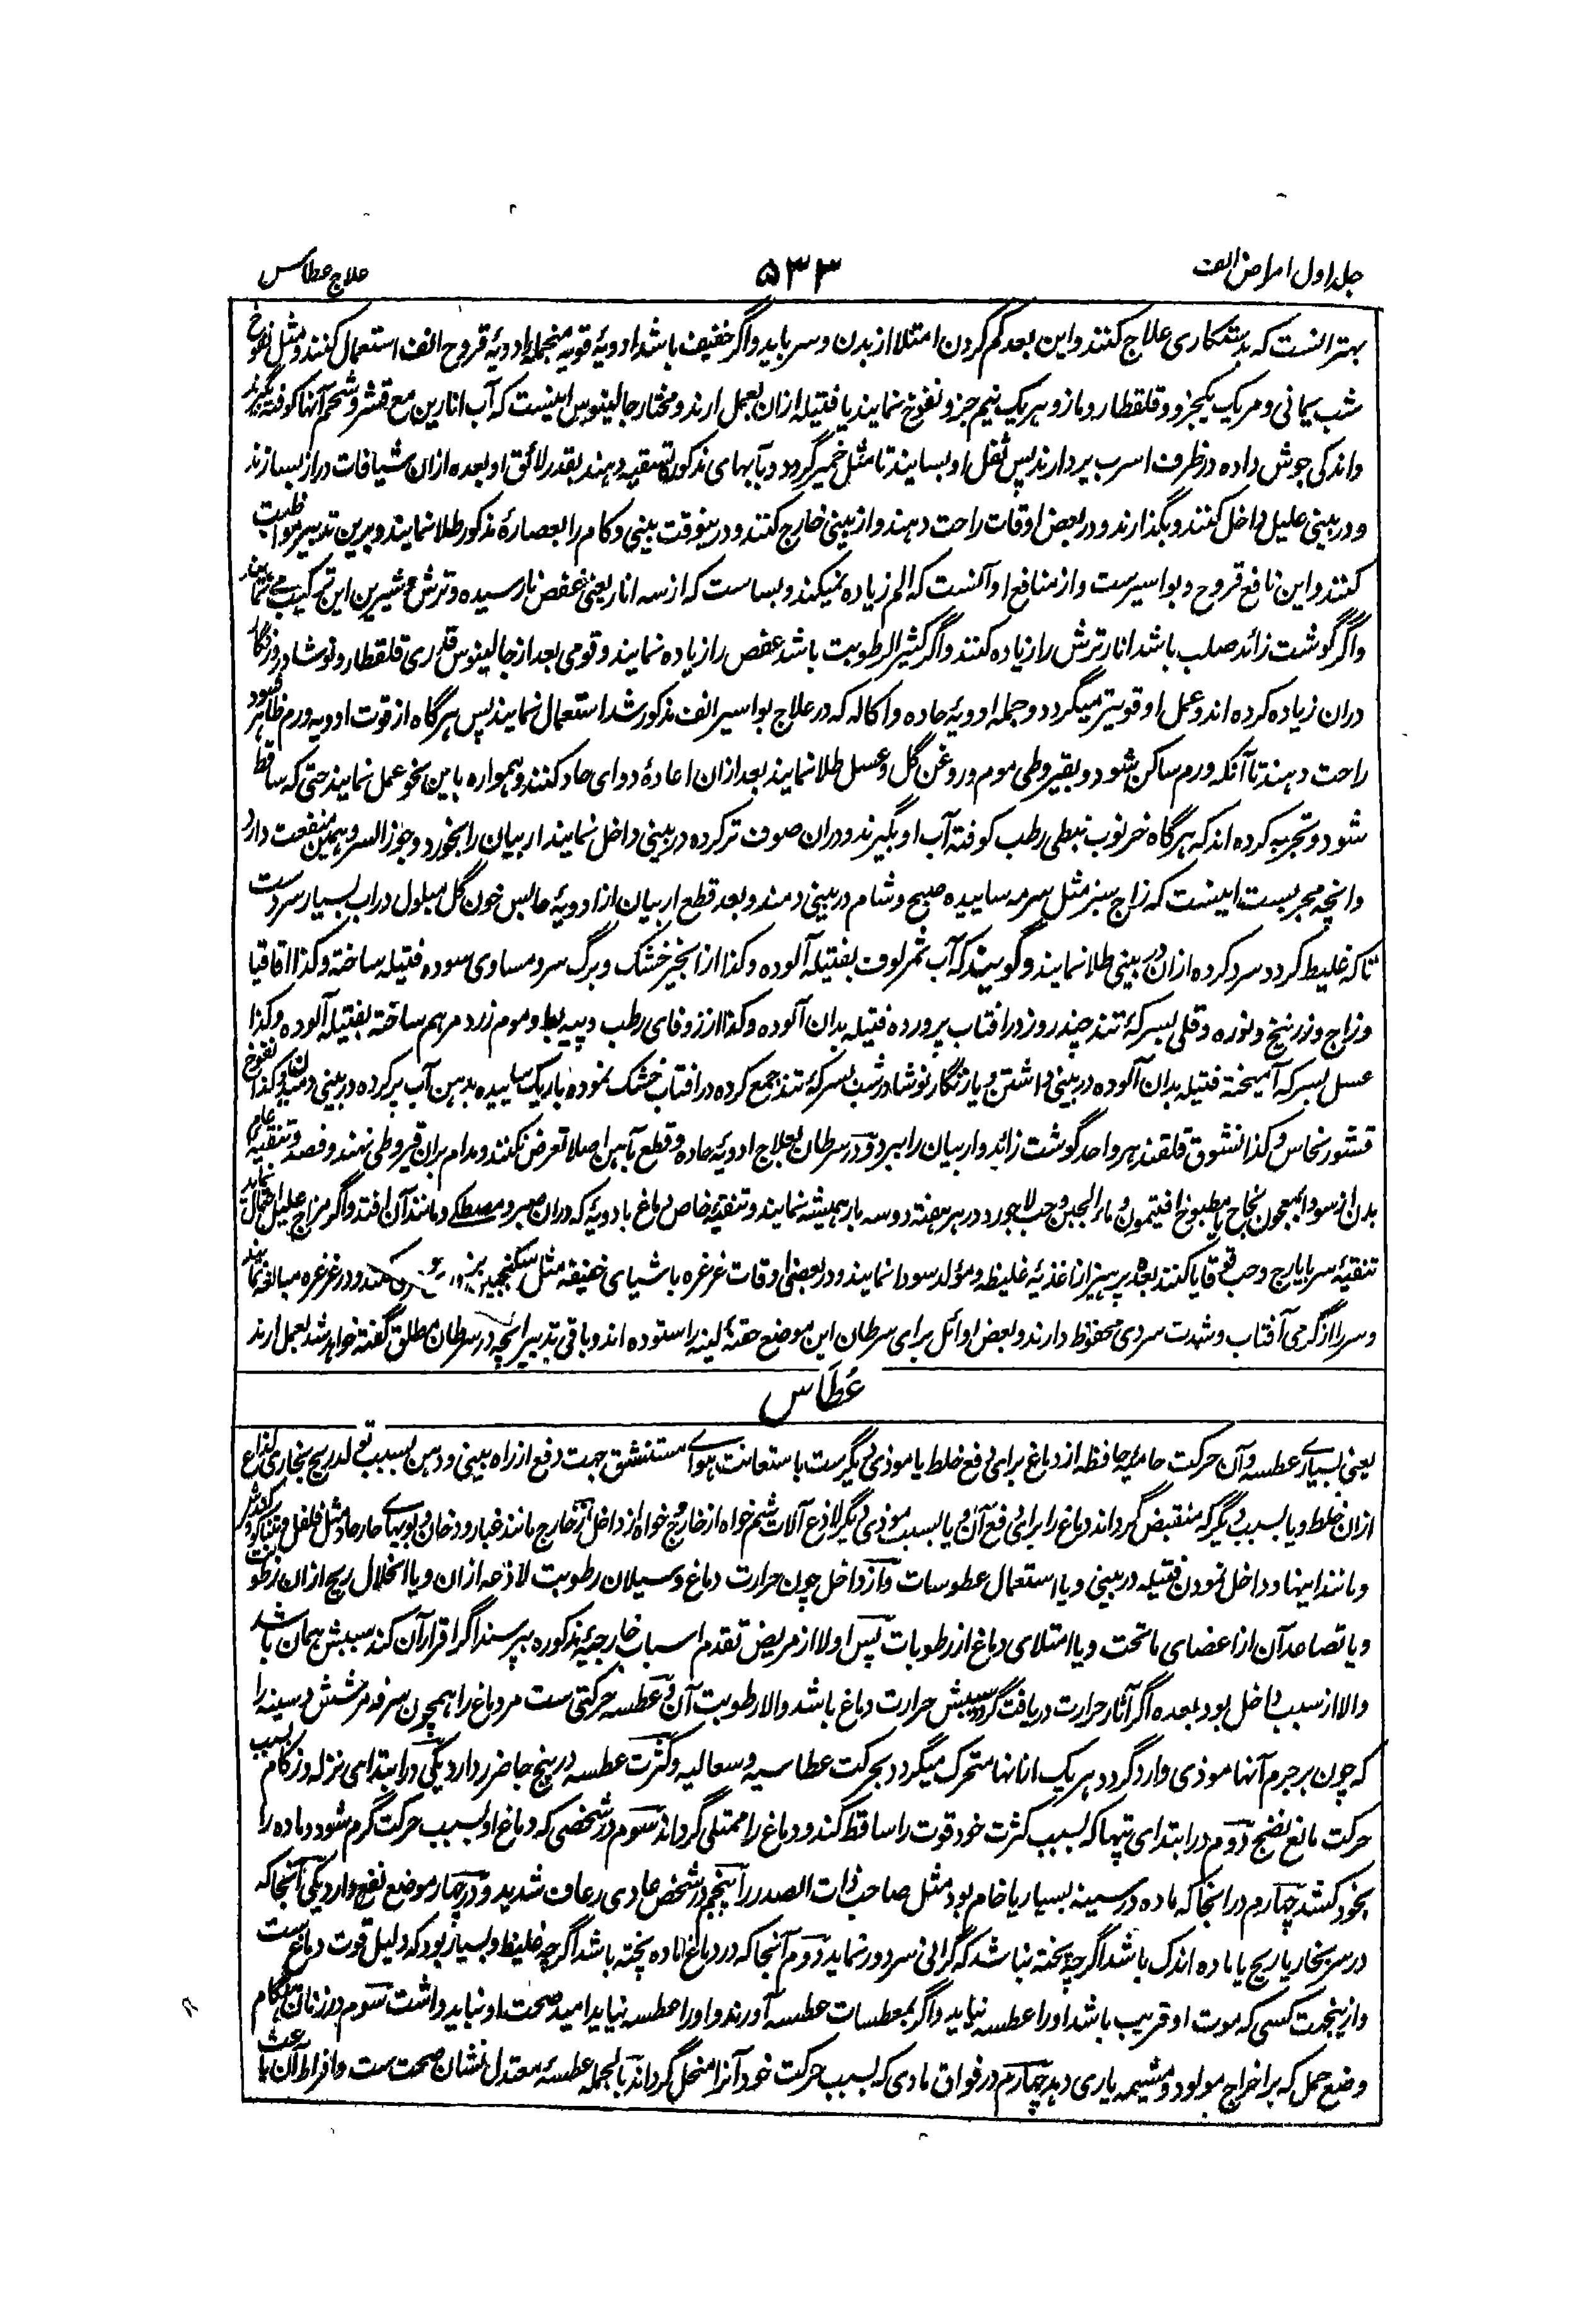 جلد اول امراض انف
۵۳۳
علاج عطاس
بهتر انست که بدستکاری علاج کنند و این بعد کم کردن امتلا از بدن و سر باید و اگر خفیف باشد ادویهٔ قویه منجمله ادویهٔ قروح انف استعمال کنند و مثل نفوخ
شب یمانی و مر یک یکجزو و قلقطار و مازو هر یک نیم جزو نفوخ نمایند یا فتیله ازان بعمل ارند و مختار جالینوس اینست که آب انارین مع قشر و شحم آنها کوفته بگیرند
و اندکی جوش داده در ظرف اسرب بردارند پس ثفل او بسایند تا مثل خمیر گردد و بآبهای مذکور تسقیه دهند بقدر لائق او بعده ازان شیافات دراز بسازند
و در بینی علیل داخل کنند و بگذارند و در بعض اوقات راحت دهند و از بینی خارج کنند و درینوقت بینی و کام را بعصارهٔ مذکور طلا نمایند و برین تدبیر مواظبت
کنند و این نافع قروح و بواسیرست و از منافع او آنست که الم زیاده نمیکند و بساست که از سه انار یعنی عفص نارسیده و ترش و شیرین این ترکیب می نمایند
و اگر گوشت زائد صلب باشد انار ترش را زیاده کنند و اگر کثیر الرطوبت باشد عفص را زیاده نمایند و قومی بعد از جالینوس قدری قلقطار و نوشادر و زنگار
دران زیاده کرده اند و عمل او قویتر میگردد و جمله ادویهٔ حاده و اکاله که در علاج بواسیر انف مذکور شد استعمال نمایند پس هرگاه از قوت ادویه ورم ظاهر شود
راحت دهند تا آنکه ورم ساکن شود و بقیروطی موم و روغن گل و عسل طلا نمایند بعد ازان اعادهٔ دوای حاد کنند و همواره باین نحو عمل نمایند حتی که ساقط
شود و تجربه کرده اند که هرگاه خرنوب نبطی رطب کوفته آب او بگیرند و دران صوف تر کرده در بینی داخل نمایند اربیان را بخورد و جوز السرو همین منفعت دارد
و انچه مجربست اینست که زاج سبز مثل سرمه ساییده صبح و شام در بینی دمند و بعد قطع اربیان از ادویهٔ حابس خون گل مبلول در آب بسیار سردست
تا که غلیط گردد سرد کرده ازان در بینی طلا نمایند و گویند که آب ثمر لوف بفتیله آلوده و کذا از انجیر خشک و برگ سرو مساوی سوده فتیله ساخته و کذا اقاقیا
و زاج و زرنیخ و نوره و قلی بسرکهٔ تند چند روز در افتاب پرورده فتیله بدان آلوده و کذا از زوفای رطب و پیه بط و موم زرد مرهم ساخته بفتیله آلوده و کذا
عسل بسرکه آمیخته فتیله بدان آلوده در بینی داشتن و یا زنگار نوشادر شب بسرکهٔ تند جمع کرده در افتاب خشک نموده باریک ساییده بدهن آب پر کرده در بینی دمیدن و کذا نفوخ
قشور نحاس و کذا نشوق قلقند هر واحد گوشت زائد و اربیان را ببرد و در سرطان بعلاج ادویهٔ حاده و قطع بآهن اصلا تعرض نکنند و مدام بران قیروطی نهند و فصد و تنقیه عام
بدن از سودا بمعجون نجاح یا مطبوخ افتیمون و ماء الجبن و حب لاجورد در هر هفته دو سه بار همیشه نمایند و تنقیهٔ خاص دماغ بادویهٔ که دران صبر و مصطکی و مانند آن افتد و اگر مزاج علیل احتمال نماید
تنقیهٔ سر بایارج و حب قوقایا کنند بعده پرهیز از اغذیهٔ غلیظه و مؤلد سودا نمایند و در بعضی اوقات غرغره باشیای خفیفه مثل سکنجبین کنند و در غرغره مبالغه نمایند
و سر را از گرمی آفتاب و شدت سردی محفوظ دارند و بعض اوائل برای سرطان این موضع حقنهٔ لینه را ستوده اند و باقی تدبیر انچه در سرطان مطلق گفته خواهد شد بعمل ارند
عُطَاس
یعنی بسیارے عطسه و آن حرکت حامیه حافظه از دماغ برای دفع خلط یا موذی دیگرست باستعانت هوای مستنشق جهت دفع از راه بینی و دهن بسبب تولد ریح بخاری لذاع
ازان خلط و یا بسبب دیگر که منقبض گرداند دماغ را برای دفع آن و یا بسبب موذی دیگر لاذع آلات شم خواه از خارج و خواه از داخل از خارج مانند غبار و دخان و بویهای حار حاد مثل فلفل و تنباکو و کندش
و مانند اینها و داخل نمودن فتیله در بینی و یا استعمال عطوسات و از داخل چون حرارت دماغ و سیلان رطوبت لاذعه ازان و یا انحلال ریح ازان رطوبت
و یا تصاعد آن از اعضای ماتحت و یا امتلای دماغ از رطوبات پس اولا از مریض تقدم اسباب خارجیهٔ مذکوره بپرسند اگر اقرار آن کند سببش همان باشد
والا از سبب داخل بود بعده اگر آثار حرارت دریافت گردد سببش حرارت دماغ باشد والا رطوبت آن و عطسه حرکتی ست مر دماغ را همچون سرفه مر شش و سینه را
که چون بر جرم آنها موذی وارد گردد هر یک ازانها متحرک میگردد بحرکت عطاسیه و سعالیه و کثرت عطسه در پنج جا ضرر دارد یکی در ابتدای نزله و زکام بسبب
حرکت مانع نضج دوم در ابتدای تپها که بسبب کثرت خود قوت را ساقط کند و دماغ را ممتلی گرداند سوم در شخصی که دماغ او بسبب حرکت گرم شود و ماده را
بخود کشد چهارم در انجا که ماده در سینه بسیار یا خام بود مثل صاحب ذات الصدر را پنجم در شخص عادی رعاف شدید و در چهار موضع نفع دارد یکی آنجا که
در سر بخار یا ریح یا ماده اندک باشد اگرچه پخته نباشد که گرانی سر دور نماید دوم آنجا که در دماغ ماده پخته باشد اگرچه غلیظ و بسیار بود که دلیل قوت دماغ ست
و ازینجهت کسی که موت او قریب باشد او را عطسه نیاید و اگر بمعطسات عطسه آورند و او را عطسه نیاید امید صحت او نباید داشت سوم در زنان هنگام
وضع حمل که بر اخراج مولود و مشیمه یاری دهد چهارم در فواق مادی که بسبب حرکت خود آنرا منحل گرداند بالجمله عطسهٔ معتدل نشان صحت ست و افراط آن باعث